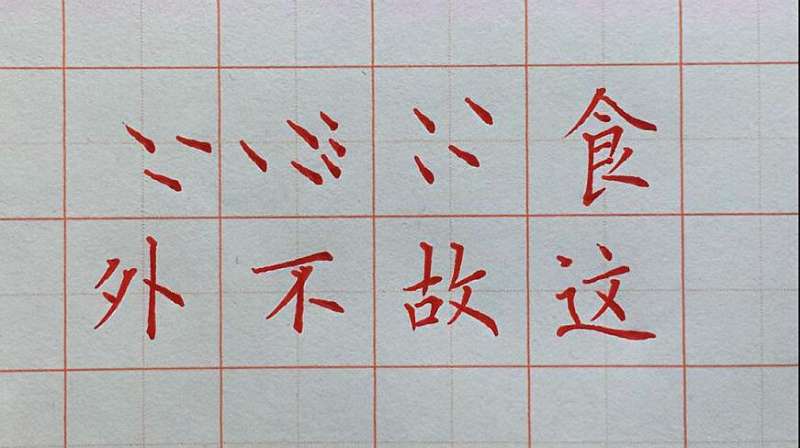 食
外不故这